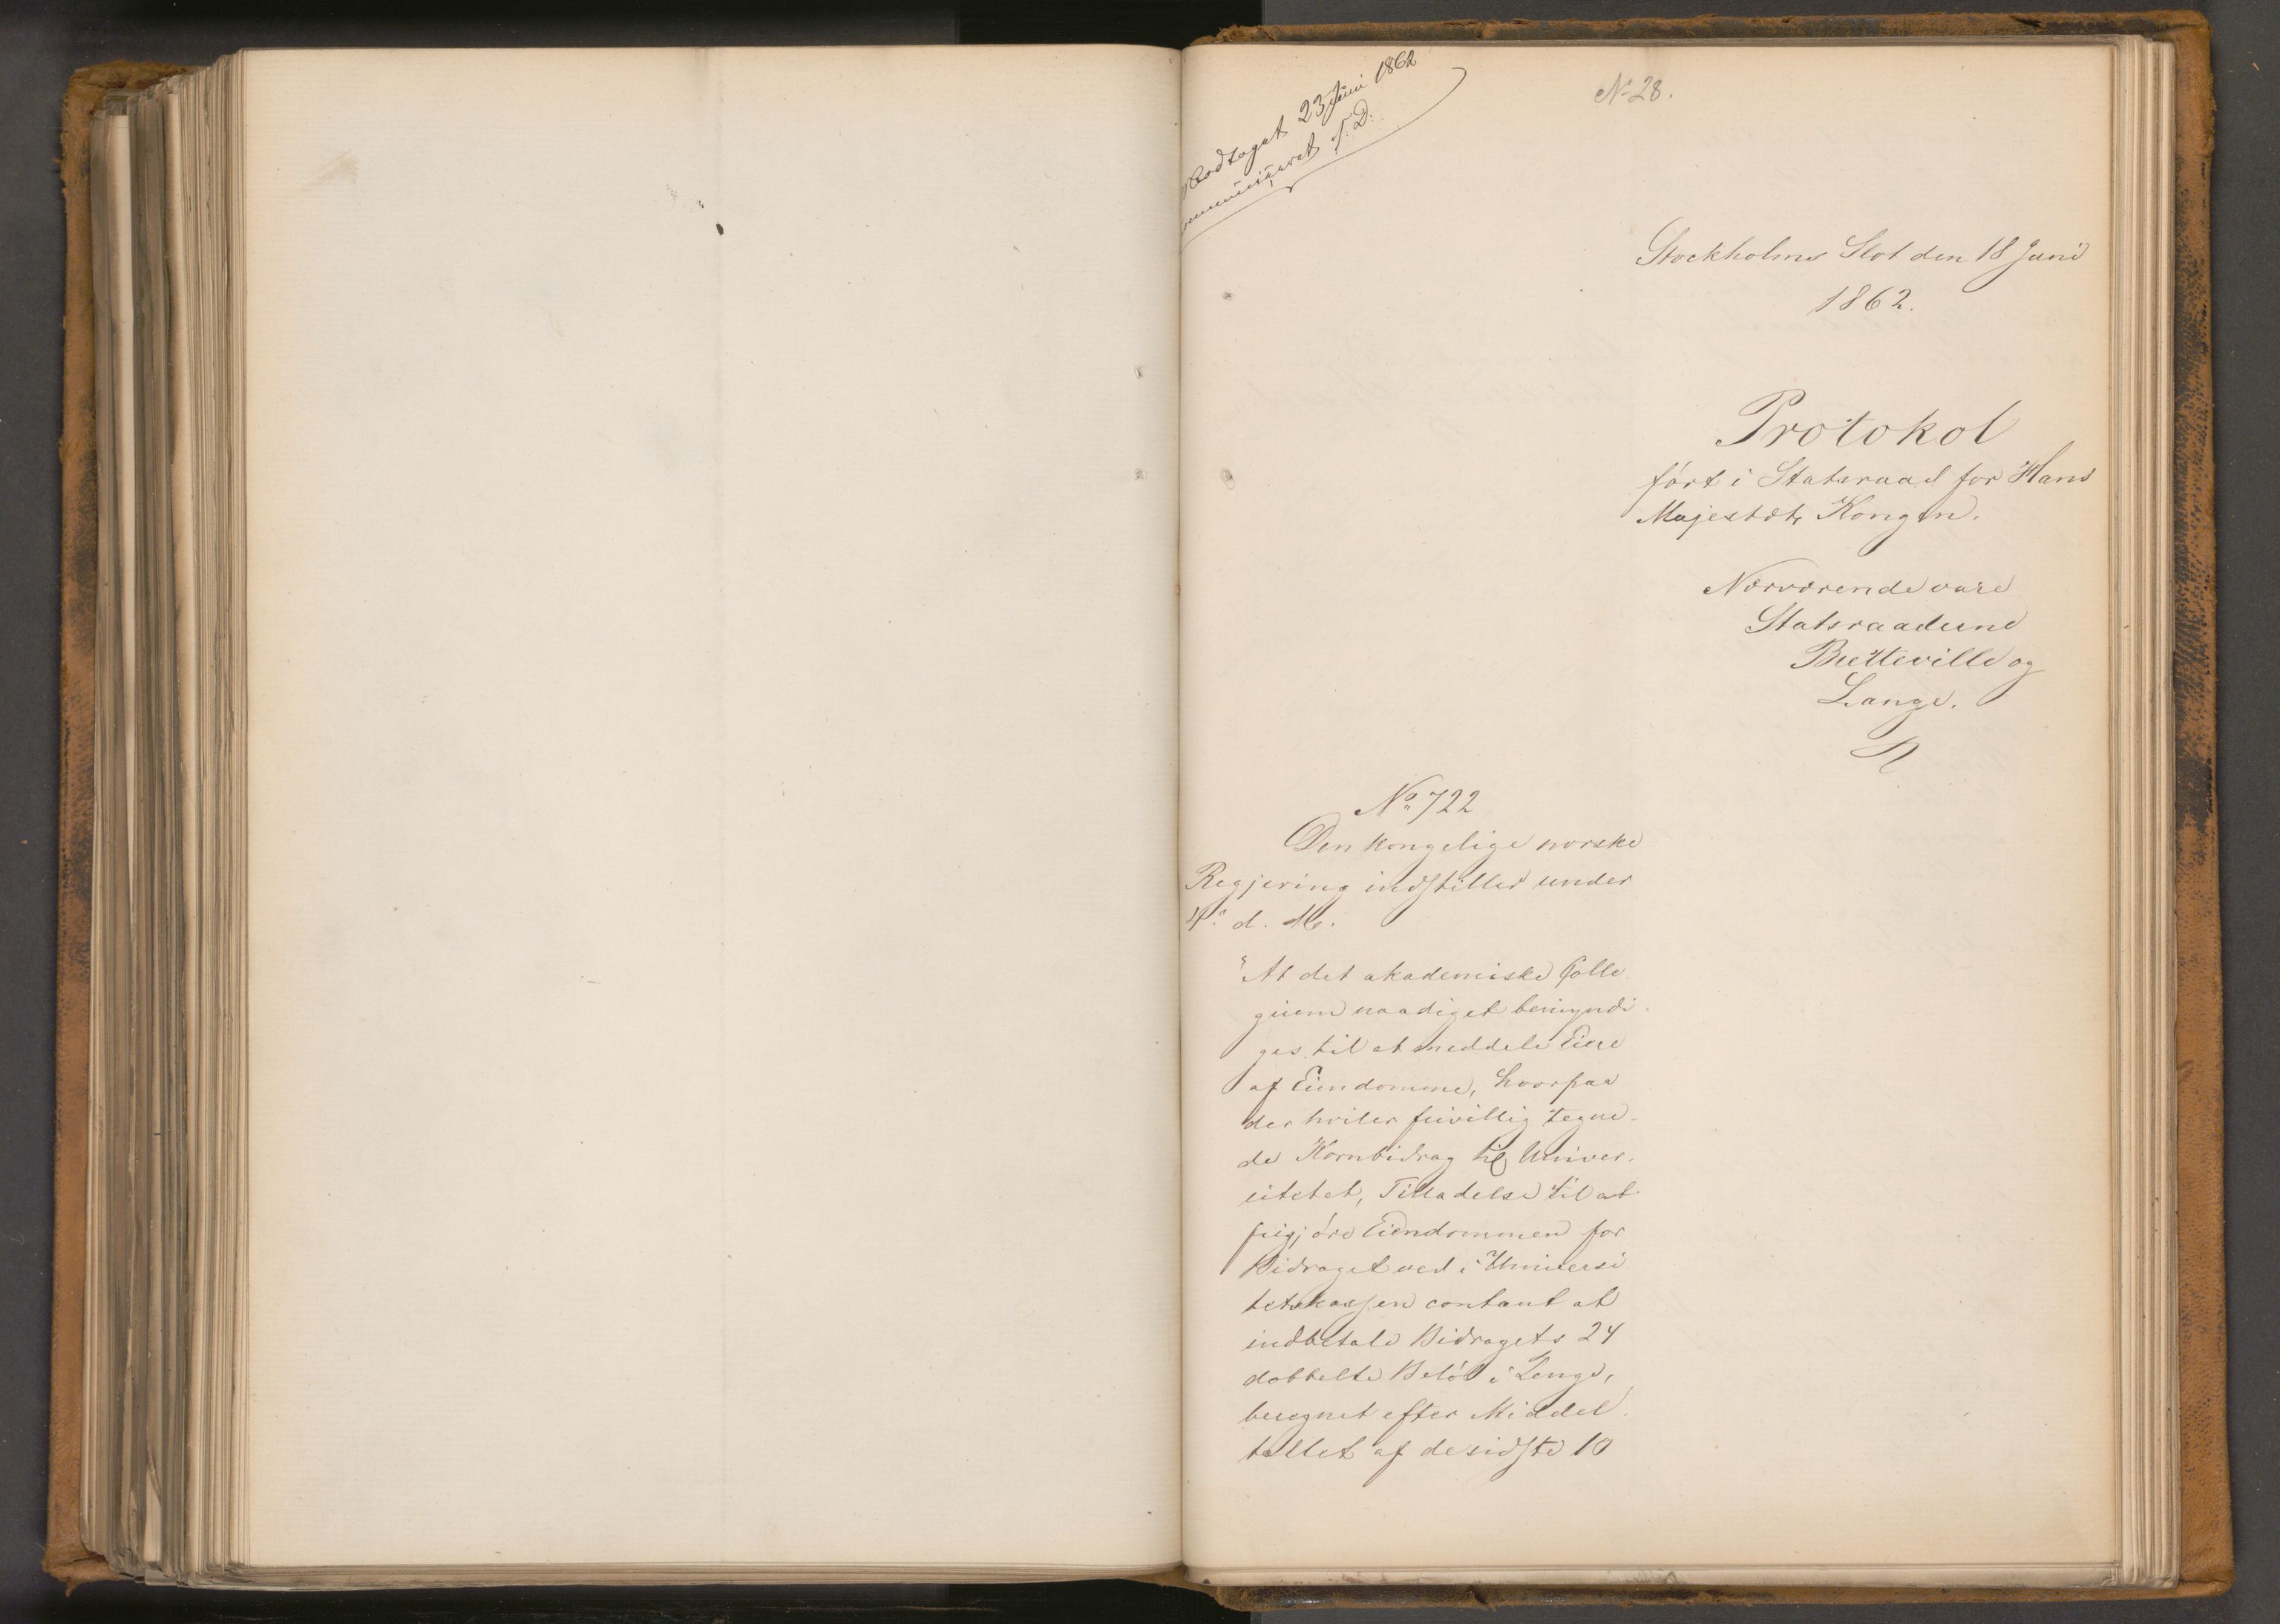 Modtaget 23 Juni 1862
communiceret s. D.
No 28.
Stockholms Slot den 18 Juni
1862.
Protokol
ført i Statsraad for Hans
Majestæt Kongen.
Nærværende vare
Statsraaderne
Bretteville og
Lange.
No 722
Den kongelige norske
Regjering indstiller under
4. d. M.
"At det akademiske Colle
gium naadigst bemyndi-
ges til at meddele Eiere
af Eiendomme, hvorpaa
der hviler frivillig tegne-
de Kornbidrag til Univer-
sitetet, Tilladelse til at
frigjøre Eiendommen for
Bidraget ved i Universi
tetskassen contant at
indbetale Bidragets 24
dobbelte Beløb i Penge,
beregnet efter Middel-
tallet af de sidste 10